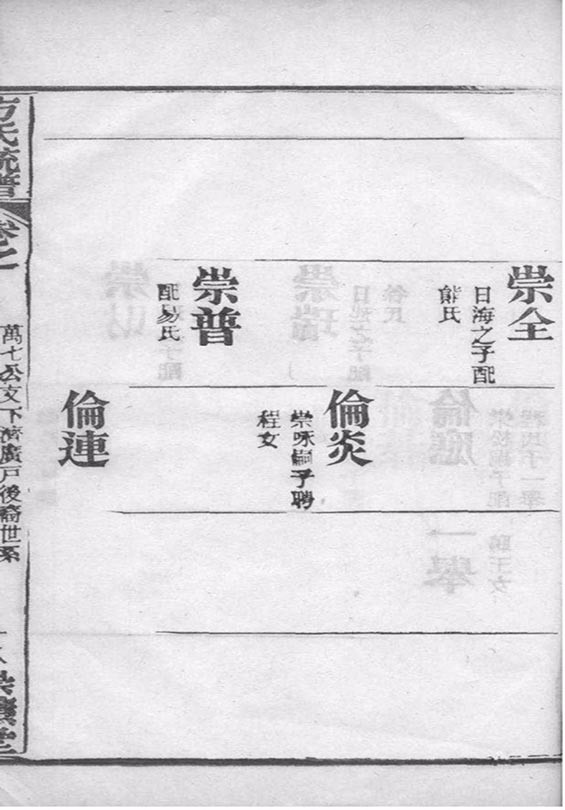 崇全
日海之子配
熊氏
崇普
配易氏
倫炎
崇咏嗣子聘
程女
倫連
方氏統譜
卷之一
萬七公文下濟廣戸後裔世系